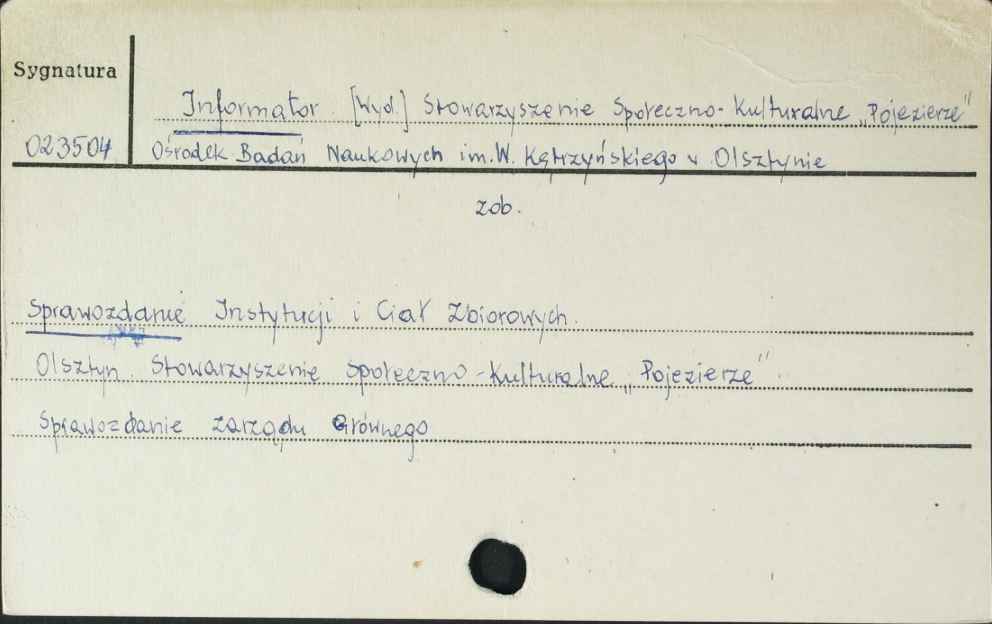 Sygnatura
Informator [Wyd.] Stowarzyszenie Społeczno-Kulturalne „Pojezierze”
023504 Ośrodek Badań Naukowych im. W. Kętrzyńskiego w Olsztynie
zob.
Sprawozdanie Instytucji i Ciał Zbiorowych.
Olsztyn. Stowarzyszenie Społeczno-Kulturalne „Pojezierze”
Sprawozdanie Zarządu Głównego